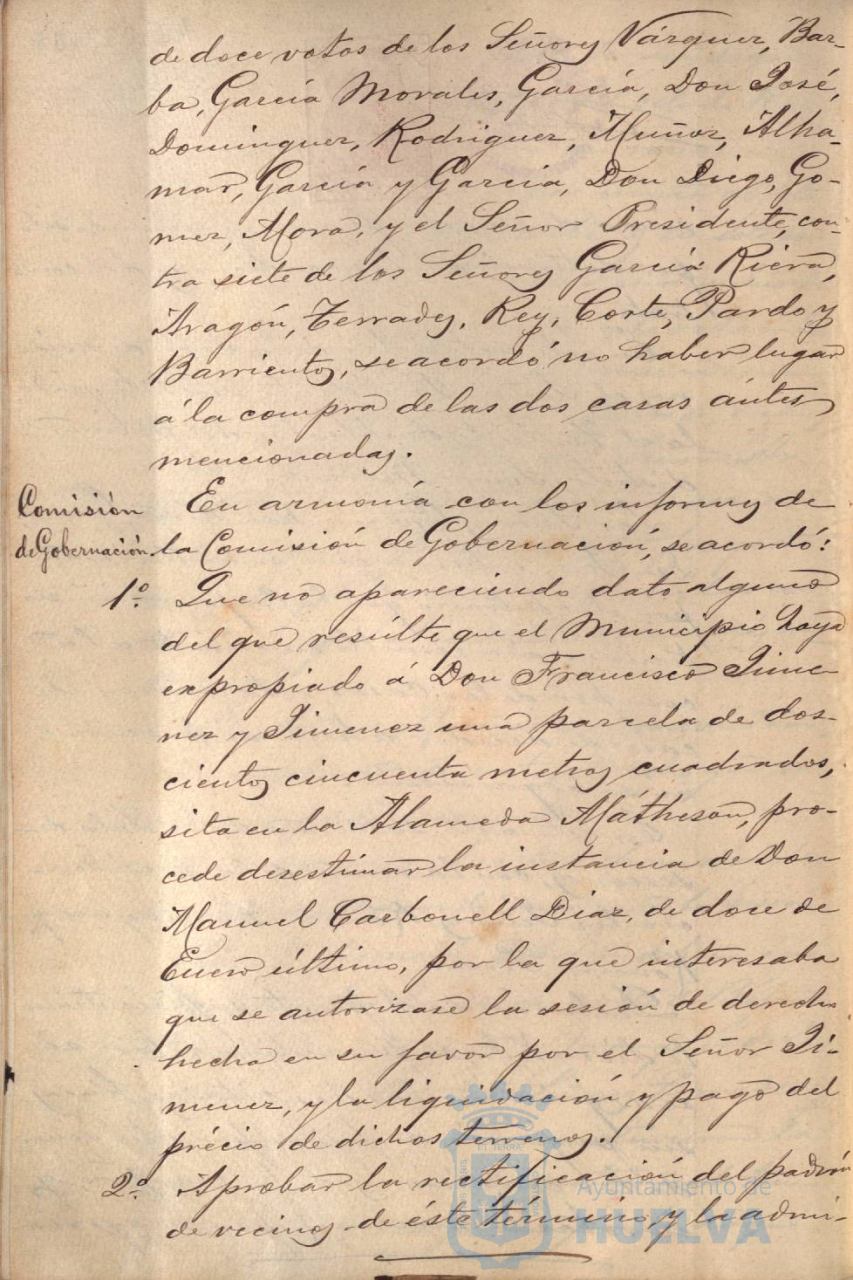 de doce votos de los Señores Vázquez, Bar-
ba, García Morales, García, Don José,
Dominguez, Rodriguez, Muñoz, Alha-
mar, García y García, Don Diego, Go-
mez, Mora, y el Señor Presidente, con-
tra siete de los Señores García Riera,
Aragón, Terrades, Rey, Corte, Pardo y
Barrientos, se acordó no haber lugar
á la compra de las dos casas ántes
mencionadas.
Comisión
de Gobernación.
En armonía con los informes de
la Comisión de Gobernación, se acordó:
1º Que no apareciendo dato alguno
del que resúlte que el Municipio haya
expropiado á Don Francisco Jime-
nez y Jimenez una parcela de dos-
cientos cincuenta metros cuadrados,
sita en la Alameda Mátheson, pro-
cede desestimar la instancia de Don
Manuel Carbonell Diaz, de doce de
Enero último, por la que interesaba
que se autorizase la sesión de derechos
hecha en su favor por el Señor Ji-
menez, y la liquidación y pago del
précio de dichos terrenos.
2º Aprobar la rectificación del padrón
de vecinos de éste término, y la admi-
Ayuntamiento de
HUELVA